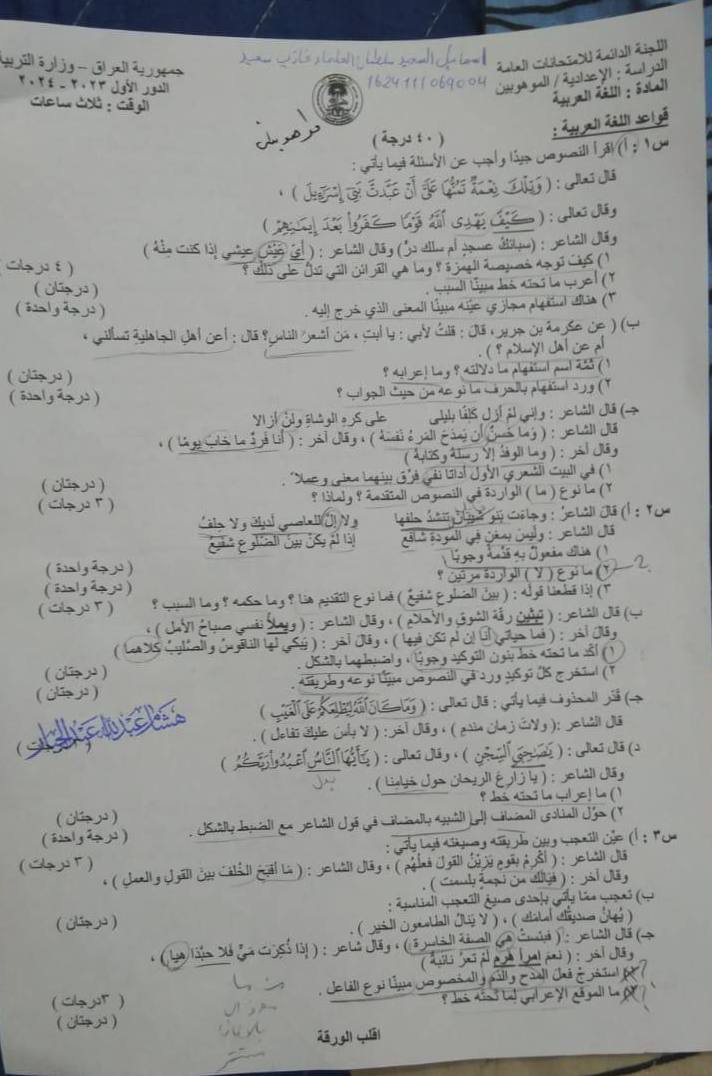 اللجنة الدائمة للامتحانات العامة
الدراسة : الإعدادية / الموهوبين
المادة : اللغة العربية
اسماعيل السعيد سلطان العلماء غازي سعيد
162411069004
جمهورية العراق – وزارة التربية
الدور الأول ٢٠٢٣ - ٢٠٢٤
الوقت : ثلاث ساعات
قواعد اللغة العربية :
( ٤٠ درجة )
س١ : أ) اقرأ النصوص جيدًا وأجب عن الأسئلة فيما يأتي :
قال تعالى : ( وَتِلْكَ نِعْمَةٌ تَمُنُّهَا عَلَيَّ أَنْ عَبَّدتَّ بَنِي إِسْرَائِيلَ ) ،
وقال تعالى : ( كَيْفَ يَهْدِي اللَّهُ قَوْمًا كَفَرُوا بَعْدَ إِيمَانِهِمْ )
وقال الشاعر : (سبائكُ عسجدٍ أم سلك درّ) وقال الشاعر : ( أيَّ عَيْشٍ عيشي إذا كنت مِنْهُ )
١) كيفَ توجه خصيصة الهمزة ؟ وما هي القرائن التي تدلُّ على ذلكَ ؟ ( ٤ درجات )
٢) أعرب ما تحته خط مبينًا السبب . ( درجتان )
٣) هناك استفهام مجازي عيّنه مبينًا المعنى الذي خرج إليه . ( درجة واحدة )
ب) ( عن عكرمة بن جرير، قالَ : قلتُ لأبي : يا أبتِ ، مَن أشعرُ الناسِ؟ قال : أعن أهلِ الجاهليةِ تسألني ،
أم عن أهل الإسلام ؟ ) .
١) ثمّة اسم استفهام ما دلالته ؟ وما إعرابه ؟ ( درجتان )
٢) ورد استفهام بالحرف ما نوعه من حيث الجواب ؟ ( درجة واحدة )
جـ) قال الشاعر : وإني لمْ أزل كَلِفًا بليلى على كرهِ الوشاةِ ولنْ أزالا
قال الشاعر : ( وَما حَسَنٌ أن يَمدَحَ المَرءُ نَفسَهُ ) ، وقال آخر : ( أنا فَردٌ ما خابَ يومًا ) ،
وقال آخر : ( وما الوفدُ إلاّ رسلهُ وكتابهُ )
١) في البيت الشعري الأول أداتا نفي فرّق بينهما معنى وعملاً . ( درجتان )
٢) ما نوع ( ما ) الواردة في النصوص المتقدمة ؟ ولماذا ؟ ( ٣ درجات )
س٢ : أ) قالَ الشاعرُ : وجاءت بنو شيبان تنشدُ حلفها ولا إلَّ للعاصي لديكَ ولا حِلفُ
قال الشاعر : وليسَ بمغنٍ في المودةِ شافعٌ إذا لَمْ يكنْ بينَ الضلوعِ شفيعُ
١) هناك مفعولٌ به قدّمهُ وجوبًا . ( درجة واحدة )
٢) ما نوع ( لا ) الواردة مرتين ؟ ( درجة واحدة )
٣) إذا قطعنا قولَه : ( بينَ الضلوعِ شفيعُ ) فما نوع التقديم هنا ؟ وما حكمه ؟ وما السبب ؟ ( ٣ درجات )
ب) قال الشاعر: ( تبثين رقّة الشوقِ والأحلامِ ) ، وقال الشاعر : ( ويملأُ نفسي صباحُ الأملِ ) ،
وقال آخر : ( فما حياتي أنا إن لم تكن فيها ) ، وقال آخر : ( يَبكي لها الناقوسُ والصّليبُ كلاهما )
١) أكّد ما تحته خطّ بنون التوكيد وجوبًا، واضبطهما بالشكل . ( درجتان )
٢) استخرج كلَّ توكيدٍ ورد في النصوص مبينًا نوعه وطريقته . ( درجتان )
جـ) قدّر المحذوف فيما يأتي : قال تعالى : ( وَمَا كَانَ اللَّهُ لِيُطْلِعَكُمْ عَلَى الْغَيْبِ )
قال الشاعر :( ولاتَ زمان مندمِ ) ، وقال آخر: ( لا بأسَ عليكَ تفاءل ) . درجات )
هشام عبدالله عبدالجبار
د) قال تعالى : ( يَا صَاحِبَيِ السِّجْنِ ) ، وقال تعالى : ( يَا أَيُّهَا النَّاسُ اعْبُدُوا رَبَّكُمُ )
بدل
وقال الشاعر : ( يا زارعَ الريحانِ حول خيامنا ) .
١) ما إعراب ما تحته خط ؟ ( درجتان )
٢) حوّل المنادى المضاف إلى الشبيه بالمضاف في قول الشاعر مع الضبط بالشكل . ( درجة واحدة )
س٣ : أ) عيّن التعجب وبين طريقته وصيغته فيما يأتي : ( ٣ درجات )
قال الشاعر : ( أكْرِمْ بقومٍ يَزيّنُ القولَ فعلُهُم ) ، وقال الشاعر : ( مَا أقبَحَ الخُلفَ بينَ القولِ والعملِ ) ،
وقال آخر : ( فيَالَكَ من نجمةٍ بلسمت ) .
ب) تعجب ممّا يأتي بإحدى صيغ التعجب المناسبة :
( يُهانُ صديقُك أمامك ) ، ( لا يَنالُ الطامعون الخير ) . ( درجتان )
جـ) قال الشاعر : ( فبئستْ هي الصفة الخاسرة ) ، وقال شاعر : ( إذا ذُكِرَت ميٌّ فلا حبّذا هيا ) ،
وقال آخر : ( نعمَ امرأً هرمٌ لمْ تعرُ نائبةٌ )
١) استخرجْ فعلَ المدْح والذّم والمخصوص مبينًا نوع الفاعل . ( ٣درجات )
٢) ما الموقع الإعرابي لما تحته خط ؟ ( درجتان )
مستتر
اقلب الورقة